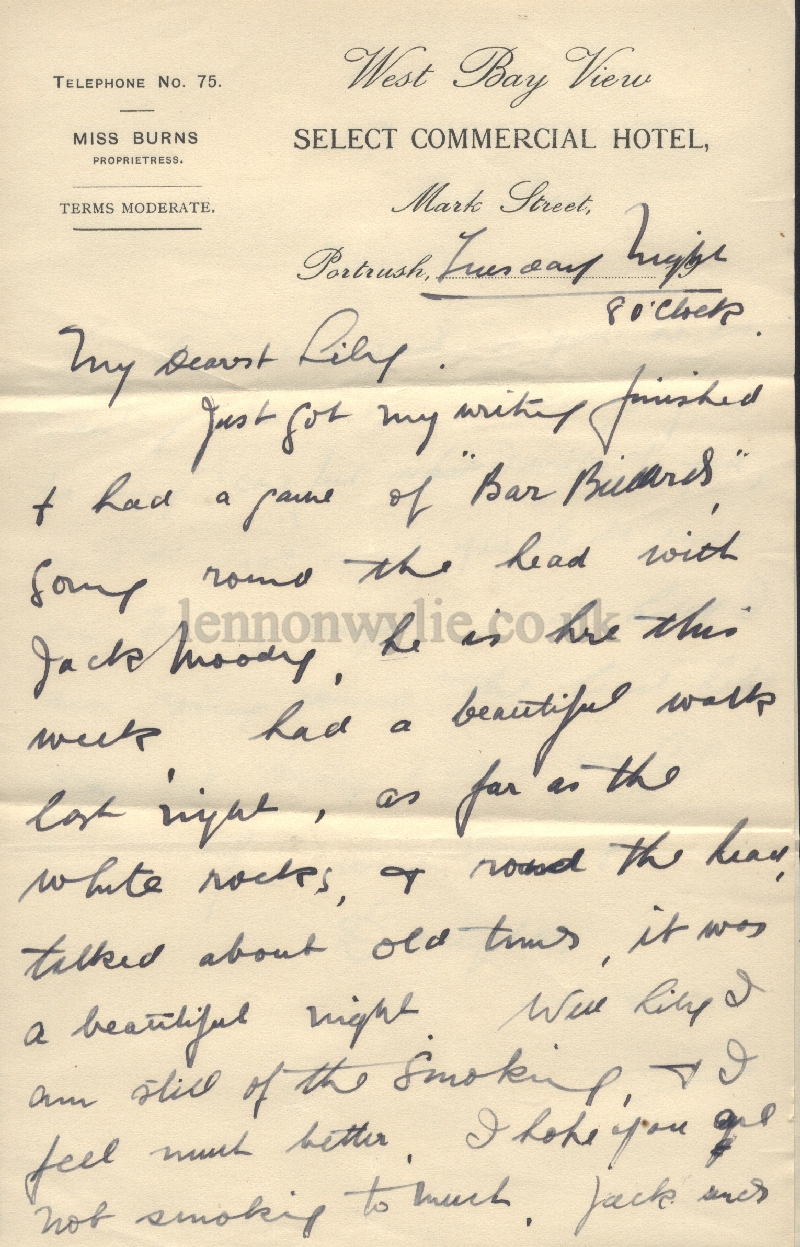 TELEPHONE NO. 75.
MISS BURNS
PROPRIETRESS.
TERMS MODERATE.
West Bay View
SELECT COMMERCIAL HOTEL,
Mark Street,
Portrush, Tuesday Night
8 o'Clock.
My Dearest Lily.
Just got my writing finished
& had a game of "Bar Billiards",
Going round the head with
Jack Moody, he is here this
week, had a beautiful walk
last night, as far as the
white rocks, & round the head,
talked about old times, it was
a beautiful night. Well Lily I
am still of the Smoking, & I
feel much better. I hope you are
not smoking to much. Jack and
lennonwylie.co.uk